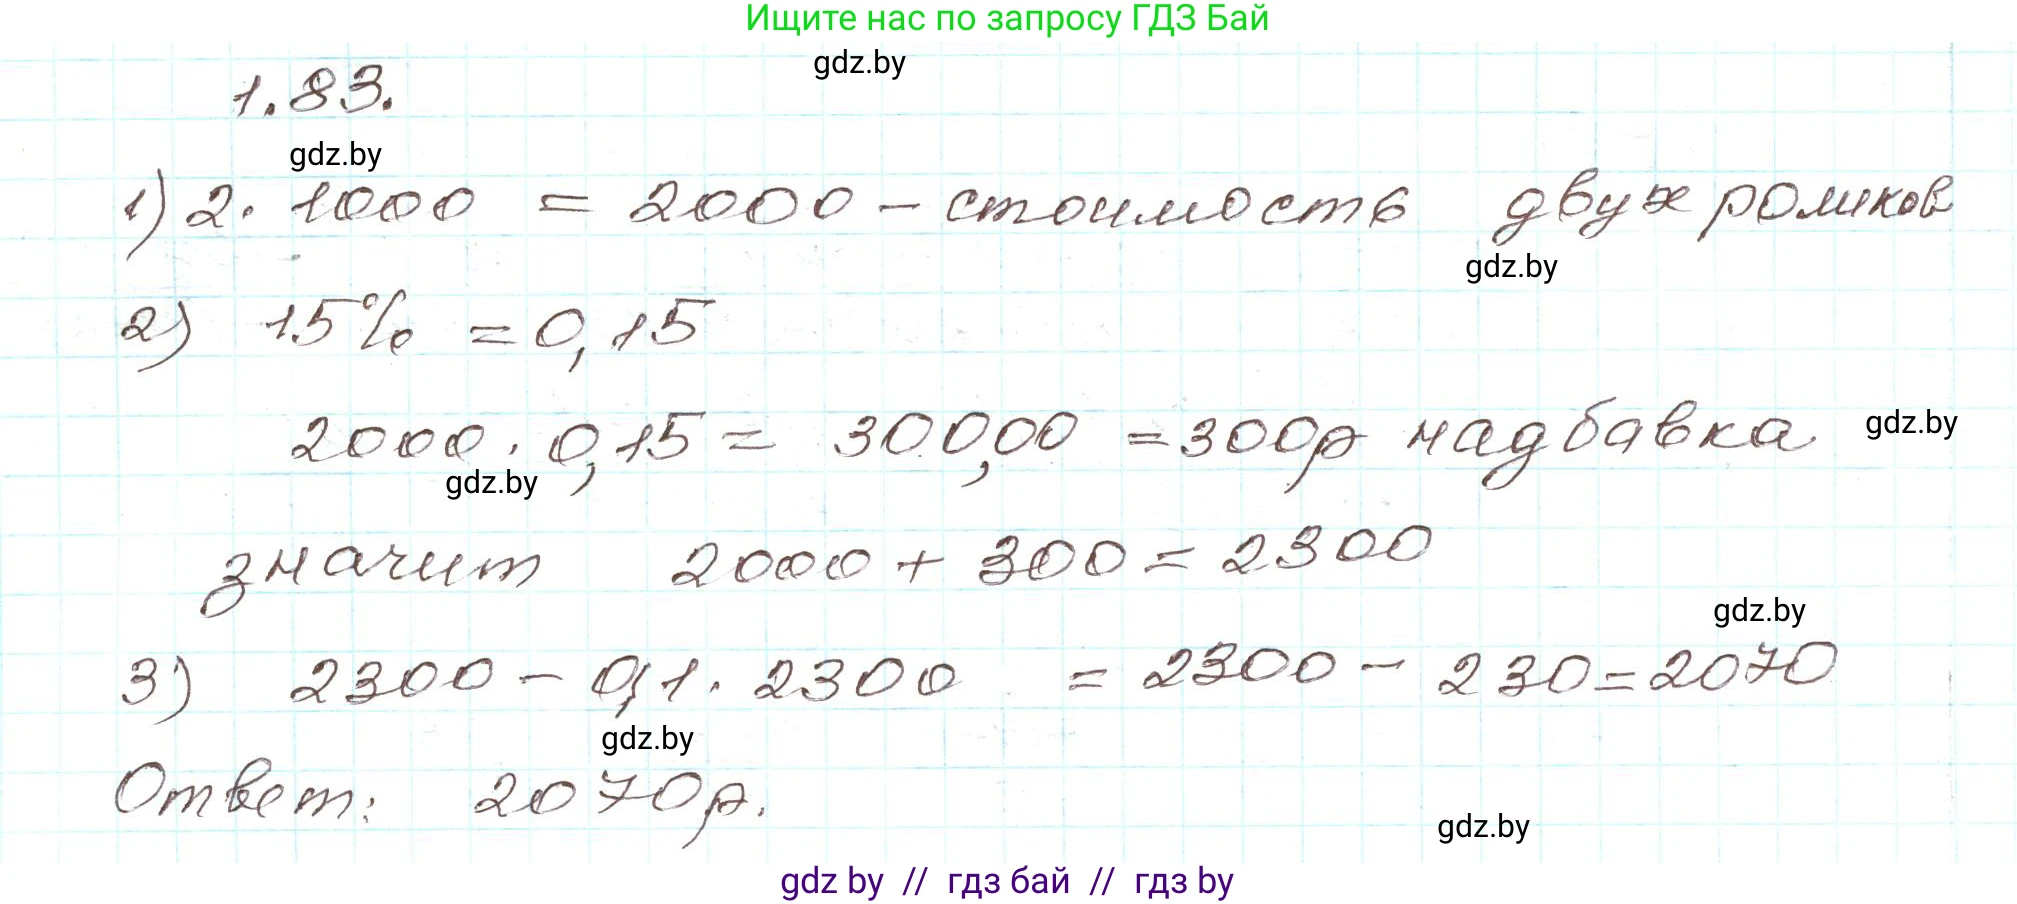 Ищите нас по запросу ГДЗ Бай
gdz.by
1.83.
gdz.by
1) 2 · 1000 = 2000 - стоимость двух роликов
gdz.by
2) 15% = 0,15
2000 · 0,15 = 300,00 = 300р надбавка
gdz.by
gdz.by
значит 2000 + 300 = 2300
gdz.by
3) 2300 - 0,1 · 2300 = 2300 - 230 = 2070
gdz.by
Ответ: 2070р.
gdz.by
gdz by // гдз бай // гдз by